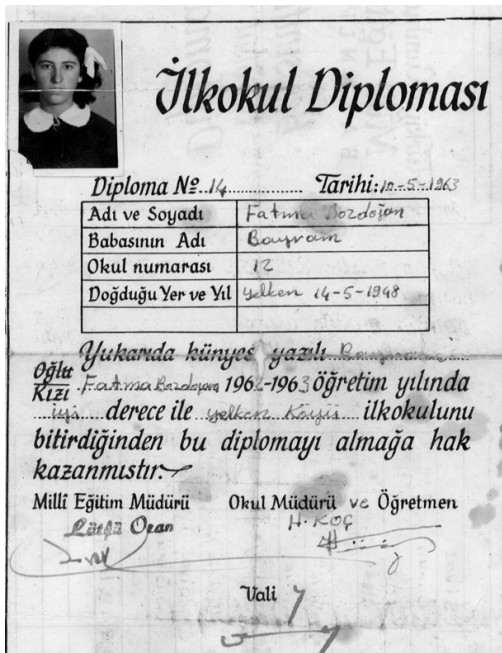 İlkokul Diploması
Diploma № 14 Tarihi: 10-5-1963
Adı ve Soyadı Fatma Bozdoğan
Babasının Adı Bayram
Okul numarası 12
Doğduğu Yer ve Yıl Yelken 14-5-1948
Yukarıda künyesi yazılı Bayram
Oğlu
Kızı Fatma Bozdoğan 1962-1963 öğretim yılında
iyi derece ile Yelken Köyü ilkokulunu
bitirdiğinden bu diplomayı almağa hak
kazanmıstır.
Millî Eğitim Müdürü Okul Müdürü ve Öğretmen
Lütfü Ozan H. KOÇ
Vali